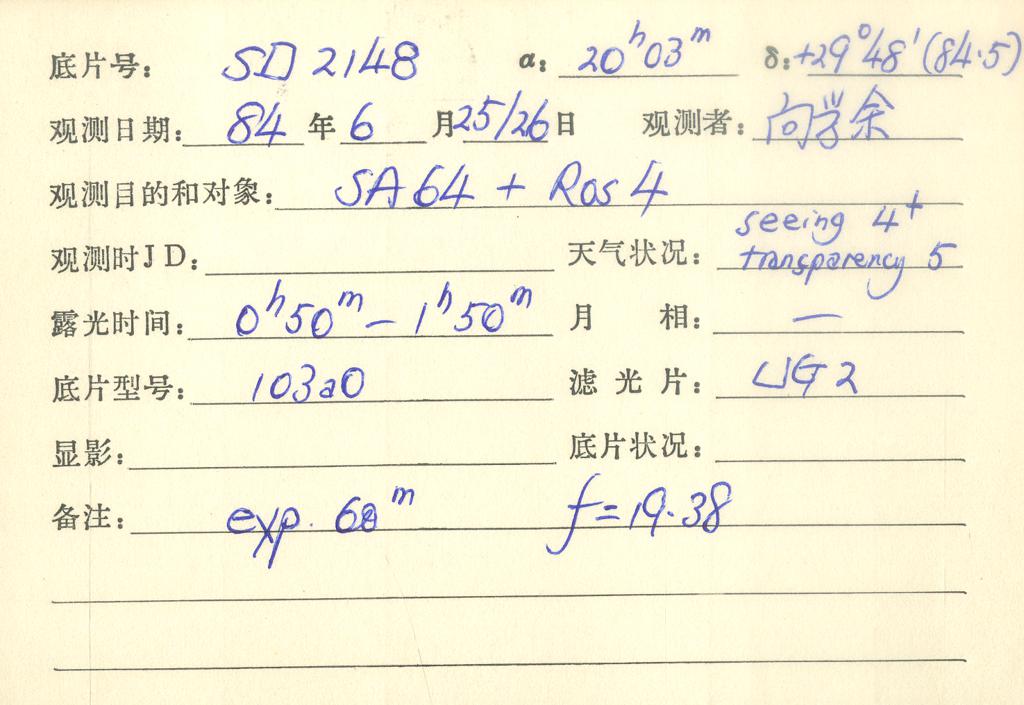 底片号: SD 2148 α: 20ʰ03ᵐ δ: +29°48′ (84.5)
观测日期: 84 年 6 月 25/26 日 观测者: 向学余
观测目的和对象: SA 64 + Ros 4
观测时JD: 天气状况: seeing 4⁺
transparency 5
露光时间: 0ʰ50ᵐ — 1ʰ50ᵐ 月 相: —
底片型号: 103aO 滤 光 片: UG 2
显影: 底片状况:
备注: exp. 60ᵐ f=19.38